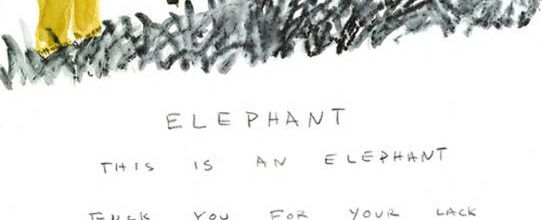 ELEPHANT
THIS IS AN ELEPHANT
FUCK YOU FOR YOUR LACK